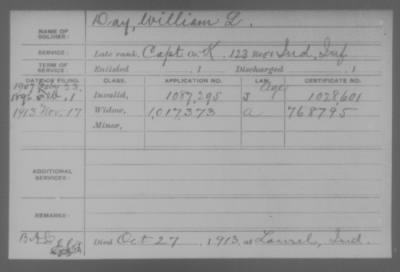 NAME OF SOLDIER: Day, William L.
SERVICE: Late rank, Capt Co. K, 123 Ind. Inf
TERM OF SERVICE: Enlisted , 1 Discharged , 1
DATE OF FILING. CLASS. APPLICATION NO. LAW. CERTIFICATE NO.
1907 23 Age
189 , 1 Invalid, 1087,295 J 1028601
1913 Nov. 17 Widow, 1,017,373 a 768795
Minor,
ADDITIONAL SERVICES:
REMARKS:
Died Oct 27, 1913, at Laurel, Ind.